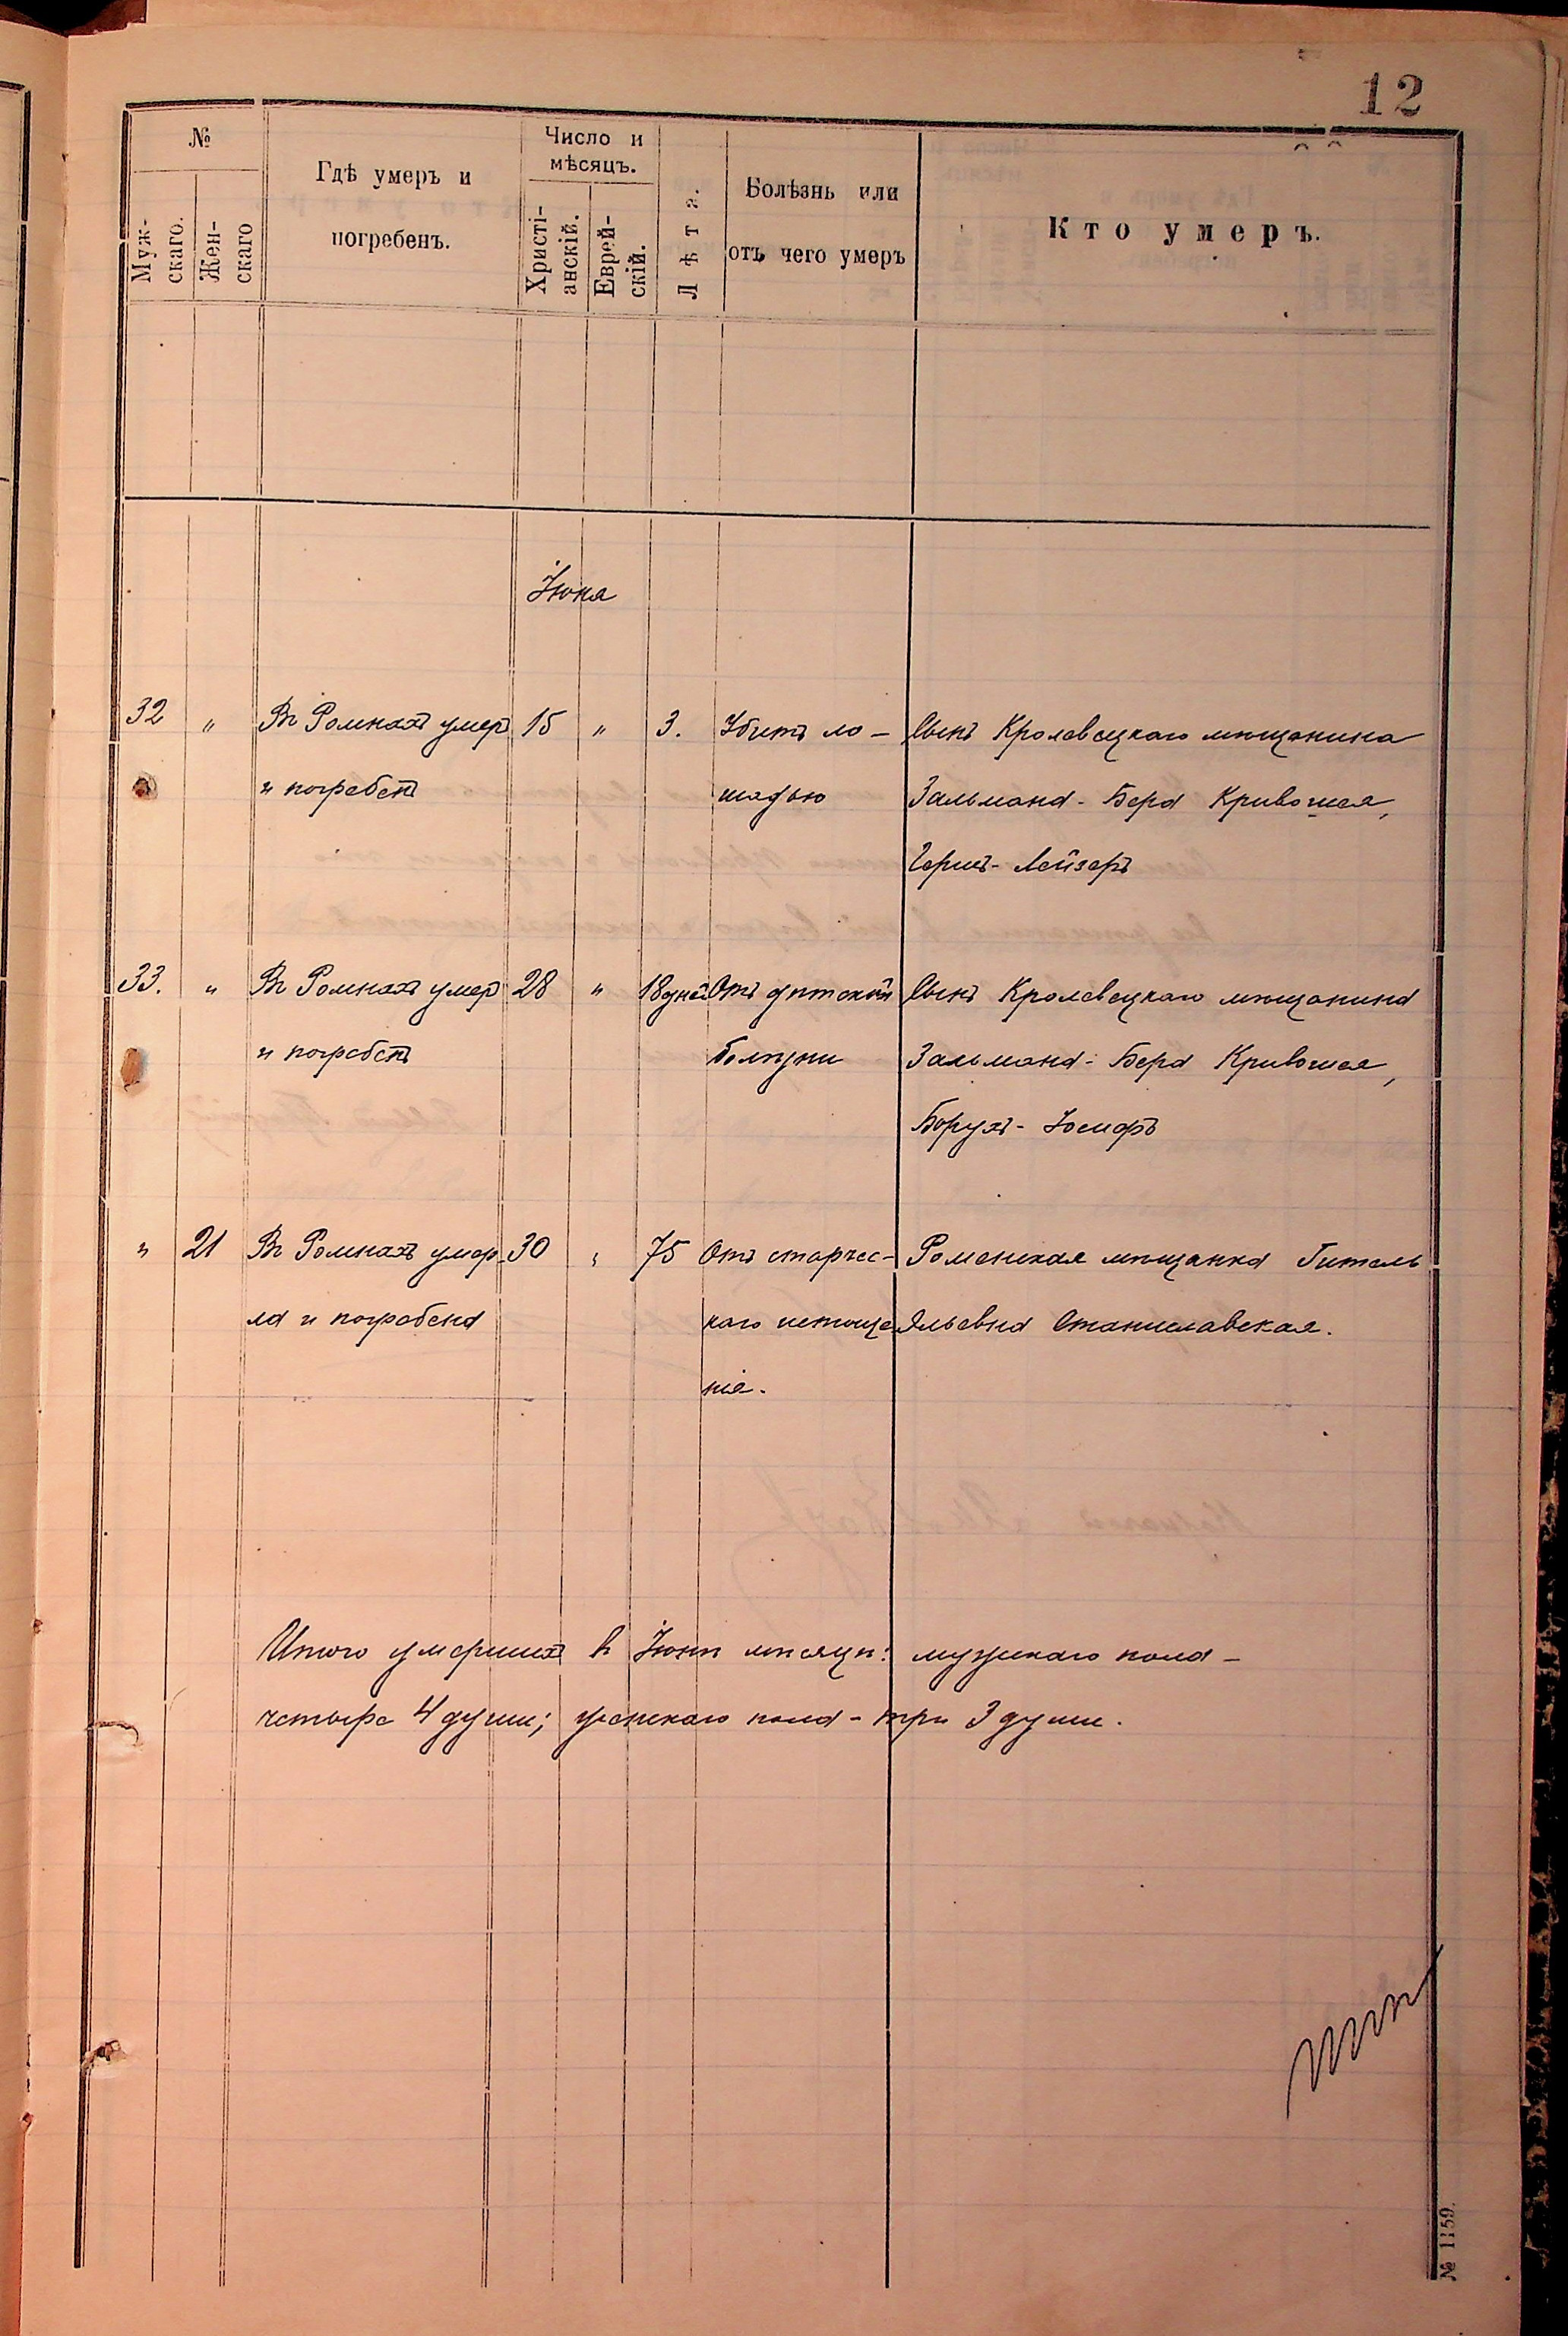 12
№
Муж-
скаго.
Жен-
скаго
Гдѣ умеръ и
погребенъ.
Число и
мѣсяцъ.
Христі-
анскій.
Еврей-
скій.
Лѣта.
Болѣзнь или
отъ чего умеръ
Кто умеръ.
Іюня
32 " Въ Ромнахъ умеръ 15 " 3. Убитъ ло- Сынъ Кролевецкаго мѣщанина
и погребенъ шадью Зальмана-Бера Кривошея,
Герцъ-Лейзеръ
33. " Въ Ромнахъ умеръ 28 " 18 дней Отъ дѣтской Сынъ Кролевецкаго мѣщанина
и погребенъ болѣзни Зальмана-Бера Кривошея,
Борухъ-Іосифъ
" 21 Въ Ромнахъ умер- 30 " 75 Отъ старчес- Роменская мѣщанка Гитель
ла и погребена каго истоще Эльевна Станиславская.
нія.
Итого умершихъ въ Іюнѣ мѣсяцѣ: мужскаго пола -
четыре 4 души; женскаго пола - три 3 души.
№ 1159.